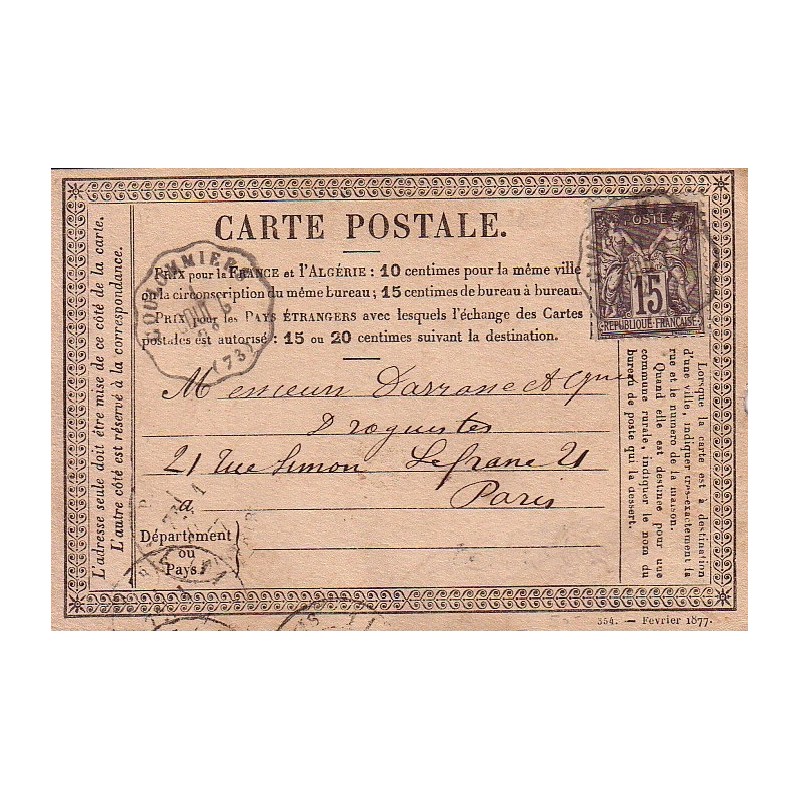 CARTE POSTALE.
PRIX pour la FRANCE et l'ALGÉRIE : 10 centimes pour la même ville
ou la circonscription du même bureau ; 15 centimes de bureau à bureau.
PRIX pour les PAYS ÉTRANGERS avec lesquels l'échange des Cartes
postales est autorisé : 15 ou 20 centimes suivant la destination.
POSTE
15
REPUBLIQUE FRANÇAISE
COULOMMIERS
(73)
Monsieur Darrasse et
Droguistes
21 rue Simon Lefranc 21
a Paris
Département
ou
Pays
L'adresse seule doit être mise de ce côté de la carte.
L'autre côté est réservé à la correspondance.
Lorsque la carte est à destination
d'une ville, indiquer très-exactement la
rue et le numéro de la maison.
Quand elle est destinée pour une
commune rurale, indiquer le nom du
bureau de poste qui la dessert.
354. — Février 1877.